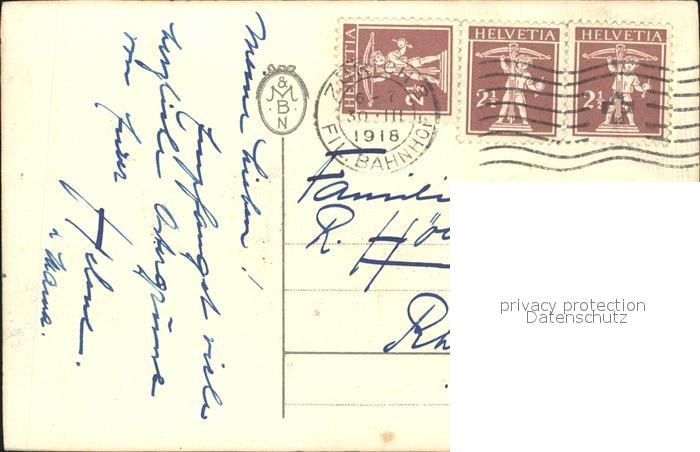 Meine Lieben!
Empfanget viele
herzliche Ostergrüsse
von Eurer
Helene.
& Mama.
& M B N
HELVETIA 2½
HELVETIA 2½
HELVETIA 2½
ZÜRICH 2
6-7
30.III.
1918
FIL. BAHNHOF
Famili
R. Hö
Rh
privacy protection
Datenschutz